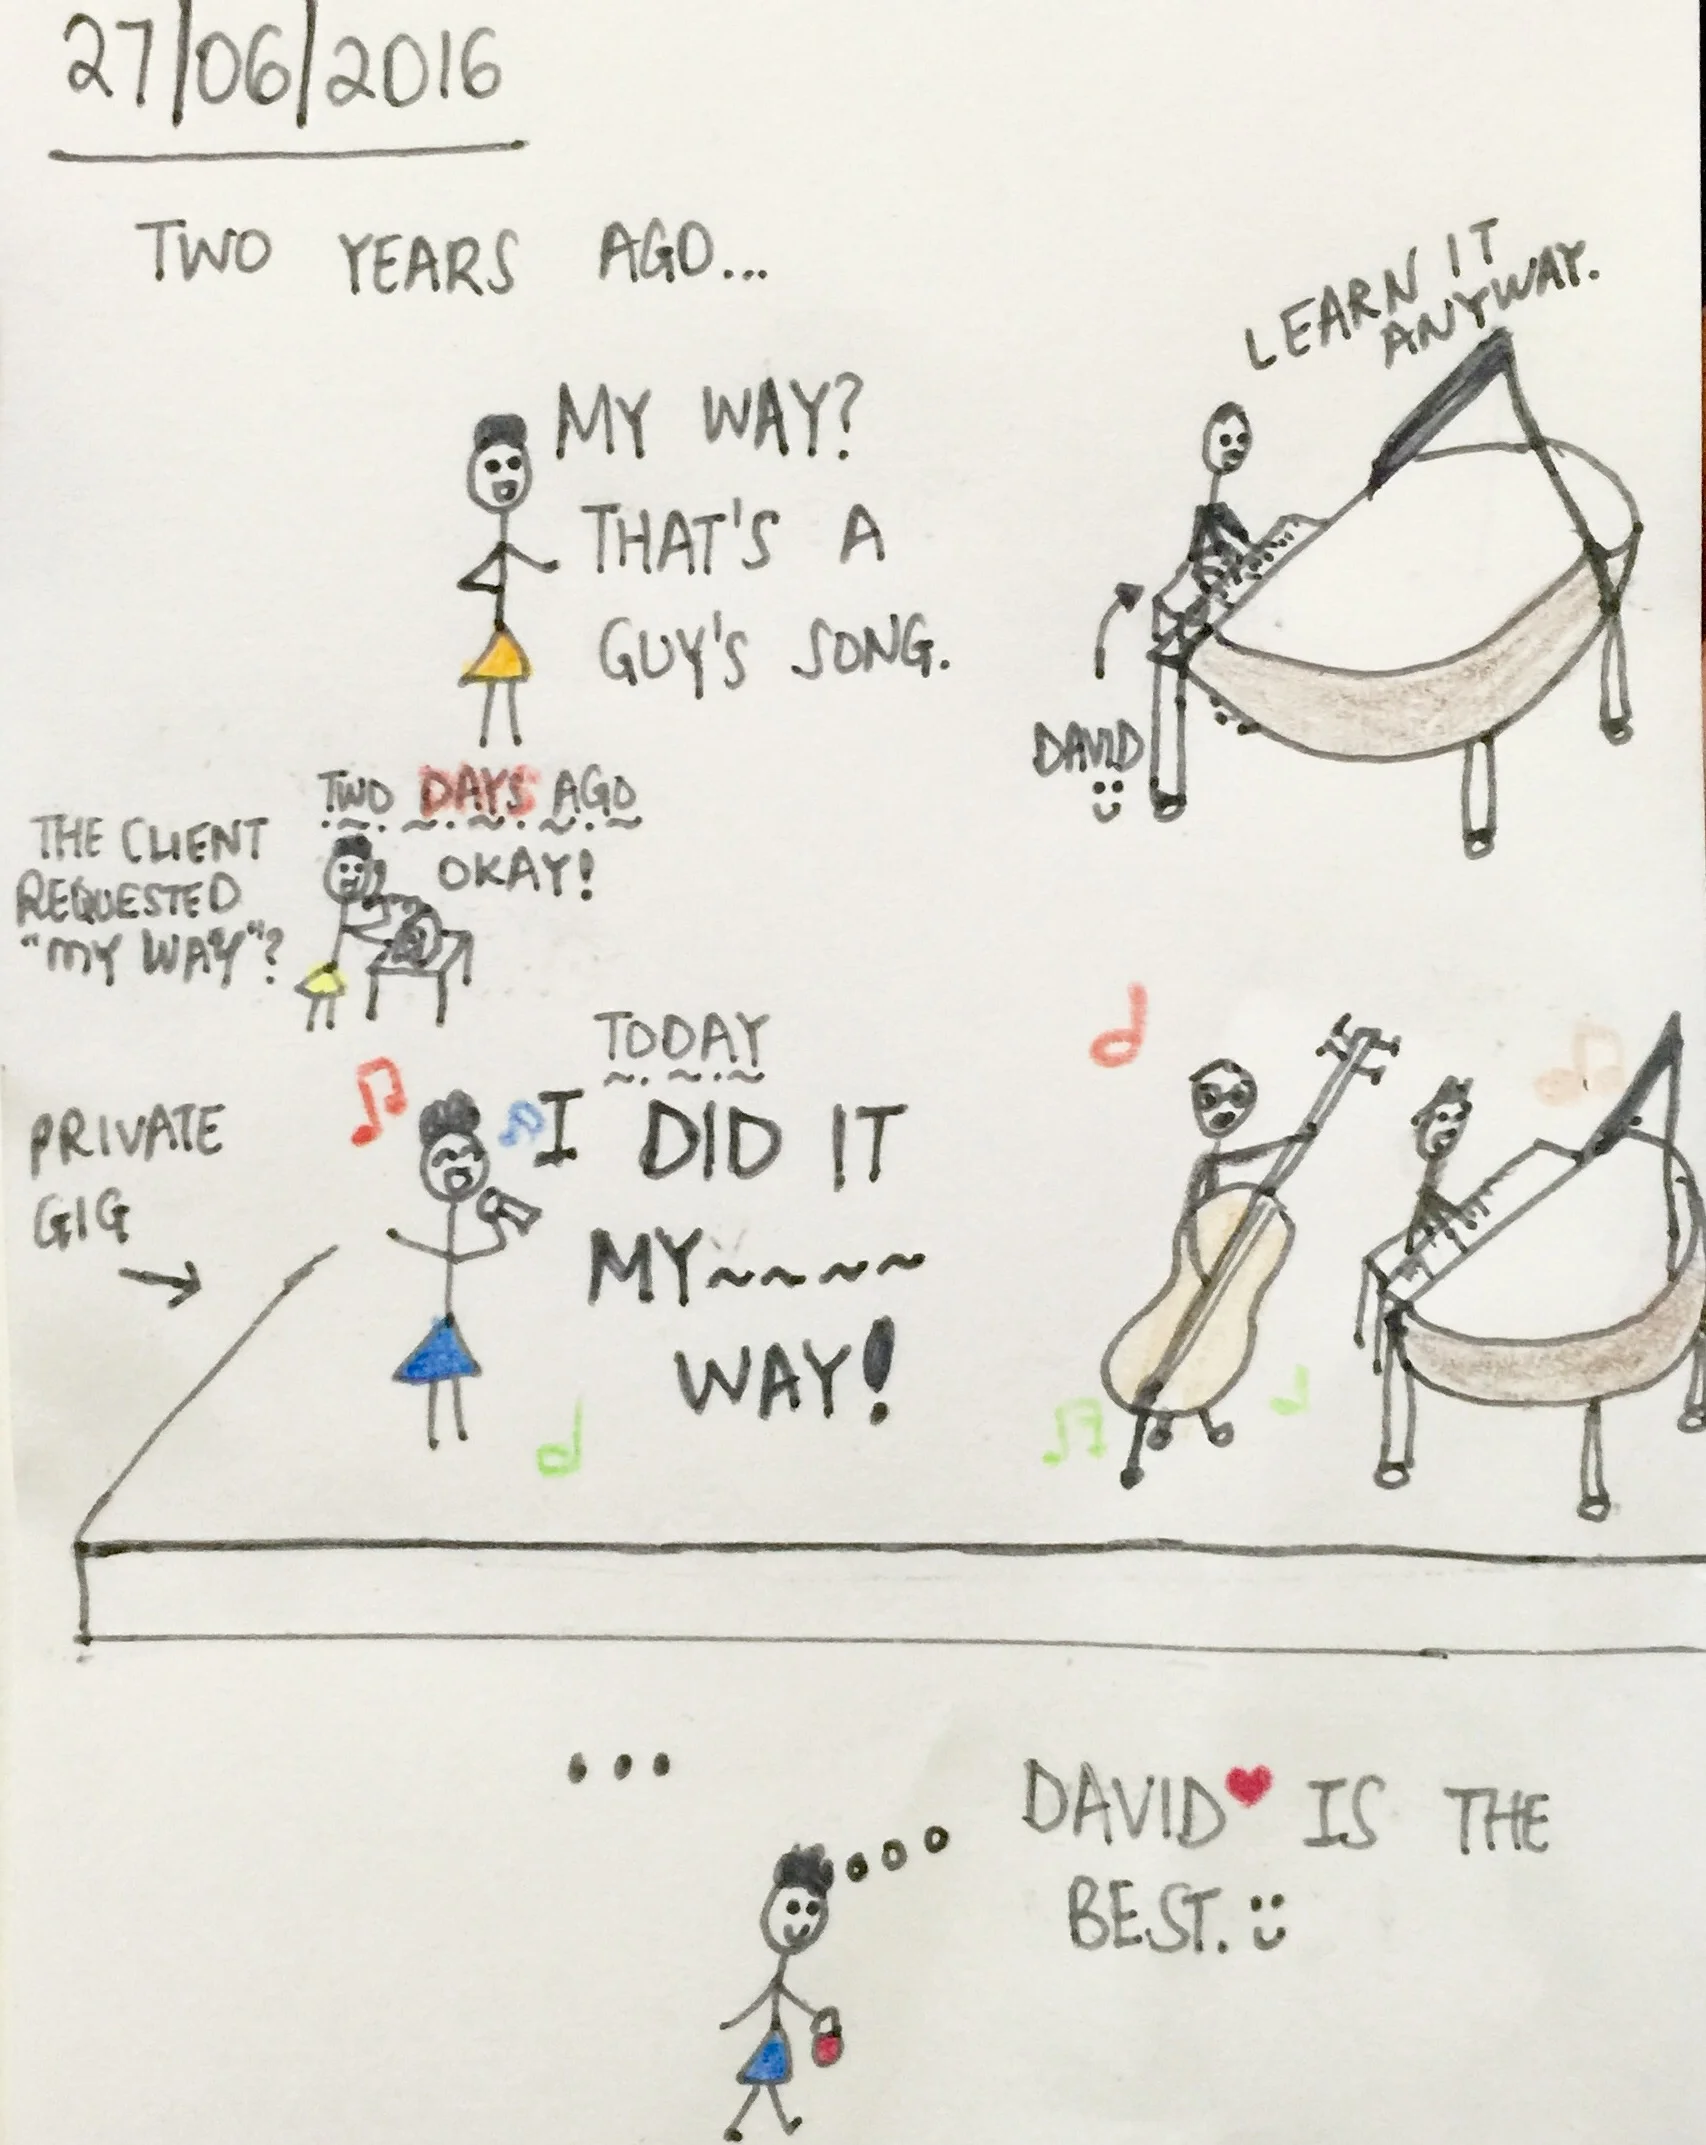 27/06/2016
TWO YEARS AGO...
LEARN IT
ANYWAY.
MY WAY?
THAT'S A
GUY'S SONG.
DAVID
TWO DAYS AGO
THE CLIENT
REQUESTED
"MY WAY"?
OKAY!
TODAY
PRIVATE
GIG
I DID IT
MY~~~~
WAY!
...
DAVID♥ IS THE
BEST.